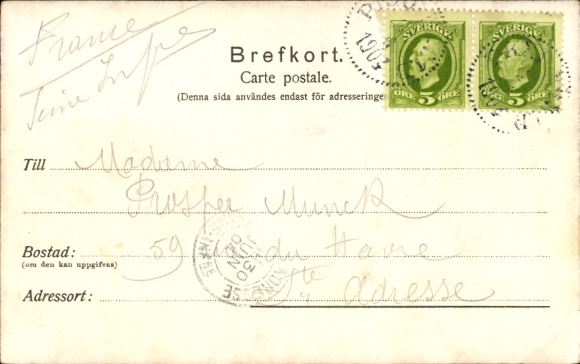 France
Seine Infre
Brefkort.
Carte postale.
(Denna sida användes endast för adresseringe
SVERIGE
5
ÖRE ÖRE
SVERIGE
5
ÖRE
1903
Till Madame
Prosper Munck
Bostad: 59 rue du Havre
(om den kan uppgifvas)
Adressort: Ste Adresse
30
JUIN